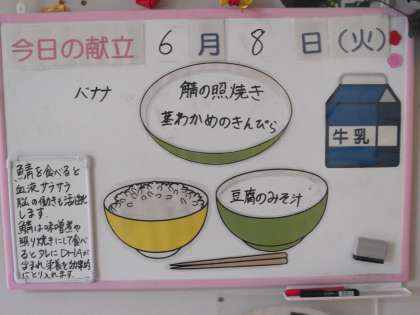 今日の献立 6月8日(火)
バナナ
鯖の照焼き
茎わかめのきんぴら
牛乳
豆腐のみそ汁
鯖を食べると
血液サラサラ
脳の働きも活性化
します。
鯖は味噌煮や
照り焼きにして食べ
るとタレにDHAが
含まれ栄養を効率的
にとり入れます。